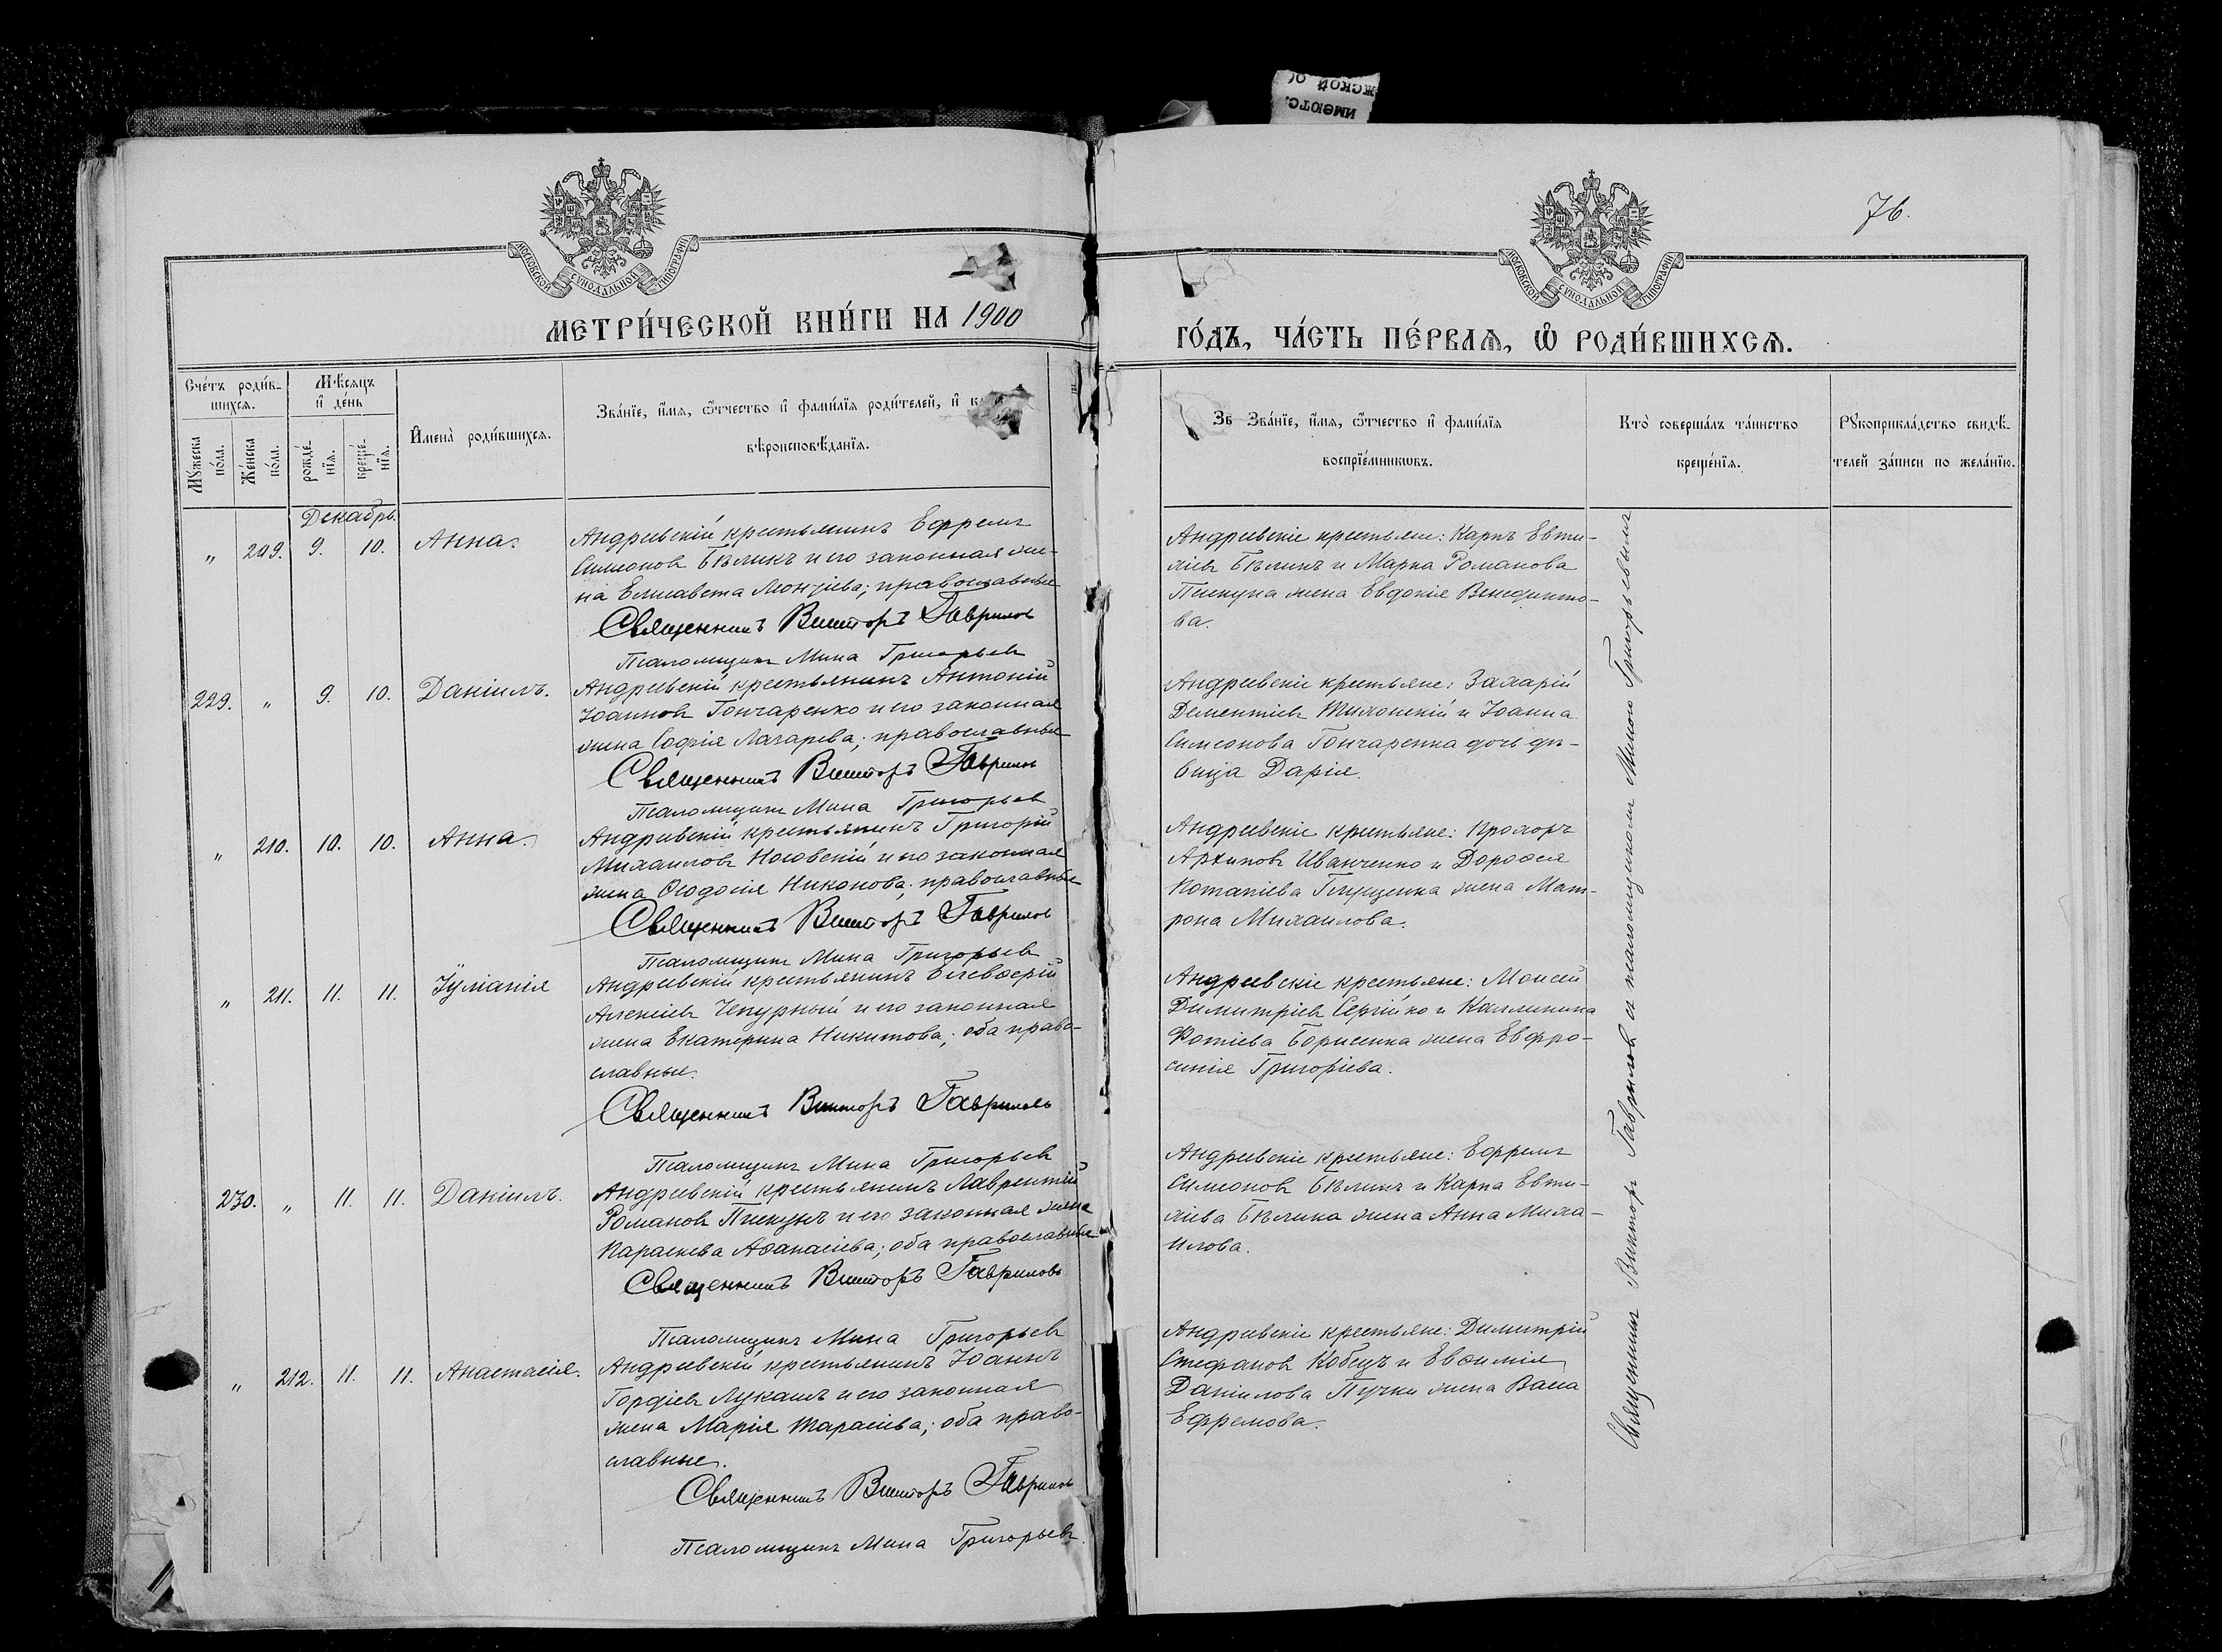 76.
МОСКОВСКОЙ СѴНОДАЛЬНОЙ ТИПОГРАФІИ
МОСКОВСКОЙ СѴНОДАЛЬНОЙ ТИПОГРАФІИ
МЕТРИ́ЧЕСКОЙ КНИ́ГИ НА 1900
ГО́ДЪ, ЧА́СТЬ ПЕ́РВАѦ, Ѽ РОДИ́ВШИХСѦ.
Счéтъ роди́в-
шихсѧ.
Мꙋ́жеска по́ла.
Же́нска по́ла.
Мѣ́сѧцъ и҆ де́нь
рожде́-
нїѧ.
креще́-
нїѧ.
И҆мена̀ роди́вшихсѧ.
Зва́нїе, и҆́мѧ, ѻ҆́тчество и҆ фами́лїѧ роди́телей, и҆
вѣроисповѣ́данїѧ.
Зва́нїе, и҆́мѧ, ѻ҆́тчество и҆ фами́лїѧ
воспрїе́мникѡвъ.
Кто̀ соверша́лъ та́инство
креще́нїѧ.
Рꙋкоприкла́дство свидѣ́-
телей за́писи по жела́нїю.
Декабрь.
„ 209. 9. 10. Анна.
Андреевскій крестьянинъ Ефремъ
Симеоновъ Бѣликъ и его законная же-
на Елисавета Монсіева; православные
Священникъ Викторъ Гавриловъ
Псаломщикъ Мина Григорьевъ
Андреевскіе крестьяне: Карпъ Евти-
хіевъ Бѣликъ и Марка Романова
Пискуна жена Евдокія Венедикто-
ва.
229. „ 9. 10. Даніилъ.
Андреевскій крестьянинъ Антоній
Іоанновъ Гончаренко и его законная
жена Софія Лазарева; православные
Священникъ Викторъ Гавриловъ
Псаломщикъ Мина Григорьевъ
Андреевскіе крестьяне: Захарій
Дементіевъ и Іоанна
Симеонова Гончаренка дочь дѣ-
вица Дарія.
„ 210. 10. 10. Анна.
Андреевскій крестьянинъ Григорій
Михаиловъ Носовскій и его законная
жена Ѳеодосія Никонова; православные
Священникъ Викторъ Гавриловъ
Псаломщикъ Мина Григорьевъ
Андреевскіе крестьяне: Прохоръ
Архиповъ Иванченко и Дороѳея
Потапіева Глущенка жена Мат-
рона Михаилова.
„ 211. 11. 11. Іуліанія
Андреевскій крестьянинъ Елевѳерій
Алексіевъ Чепурный и его законная
жена Екатерина Никитова; оба право-
славные.
Священникъ Викторъ Гавриловъ
Псаломщикъ Мина Григорьевъ
Андреевскіе крестьяне: Моисей
Димитріевъ Сергійко и Каллиника
Фотіева Борисенка жена Евфро-
синія Григоріева.
230. „ 11. 11. Даніилъ.
Андреевскій крестьянинъ Лаврентій
Романовъ Пискунъ и его законная жена
Параскева Аѳанасіева; оба православные
Священникъ Викторъ Гавриловъ
Псаломщикъ Мина Григорьевъ
Андреевскіе крестьяне: Ефремъ
Симеоновъ Бѣликъ и Карпа Евти-
хіева Бѣлика жена Анна Миха-
илова.
„ 212. 11. 11. Анастасія.
Андреевскій крестьянинъ Іоаннъ
Гордіевъ Лукашъ и его законная
жена Марія Тарасіева; оба право-
славные.
Священникъ Викторъ Гавриловъ
Псаломщикъ Мина Григорьевъ
Андреевскіе крестьяне: Димитрій
Стефановъ Кобецъ и Евѳимія
Даніилова Пучки жена Васса
Ефремова.
Священникъ Викторъ Гавриловъ съ псаломщикомъ Миною Григорьевымъ